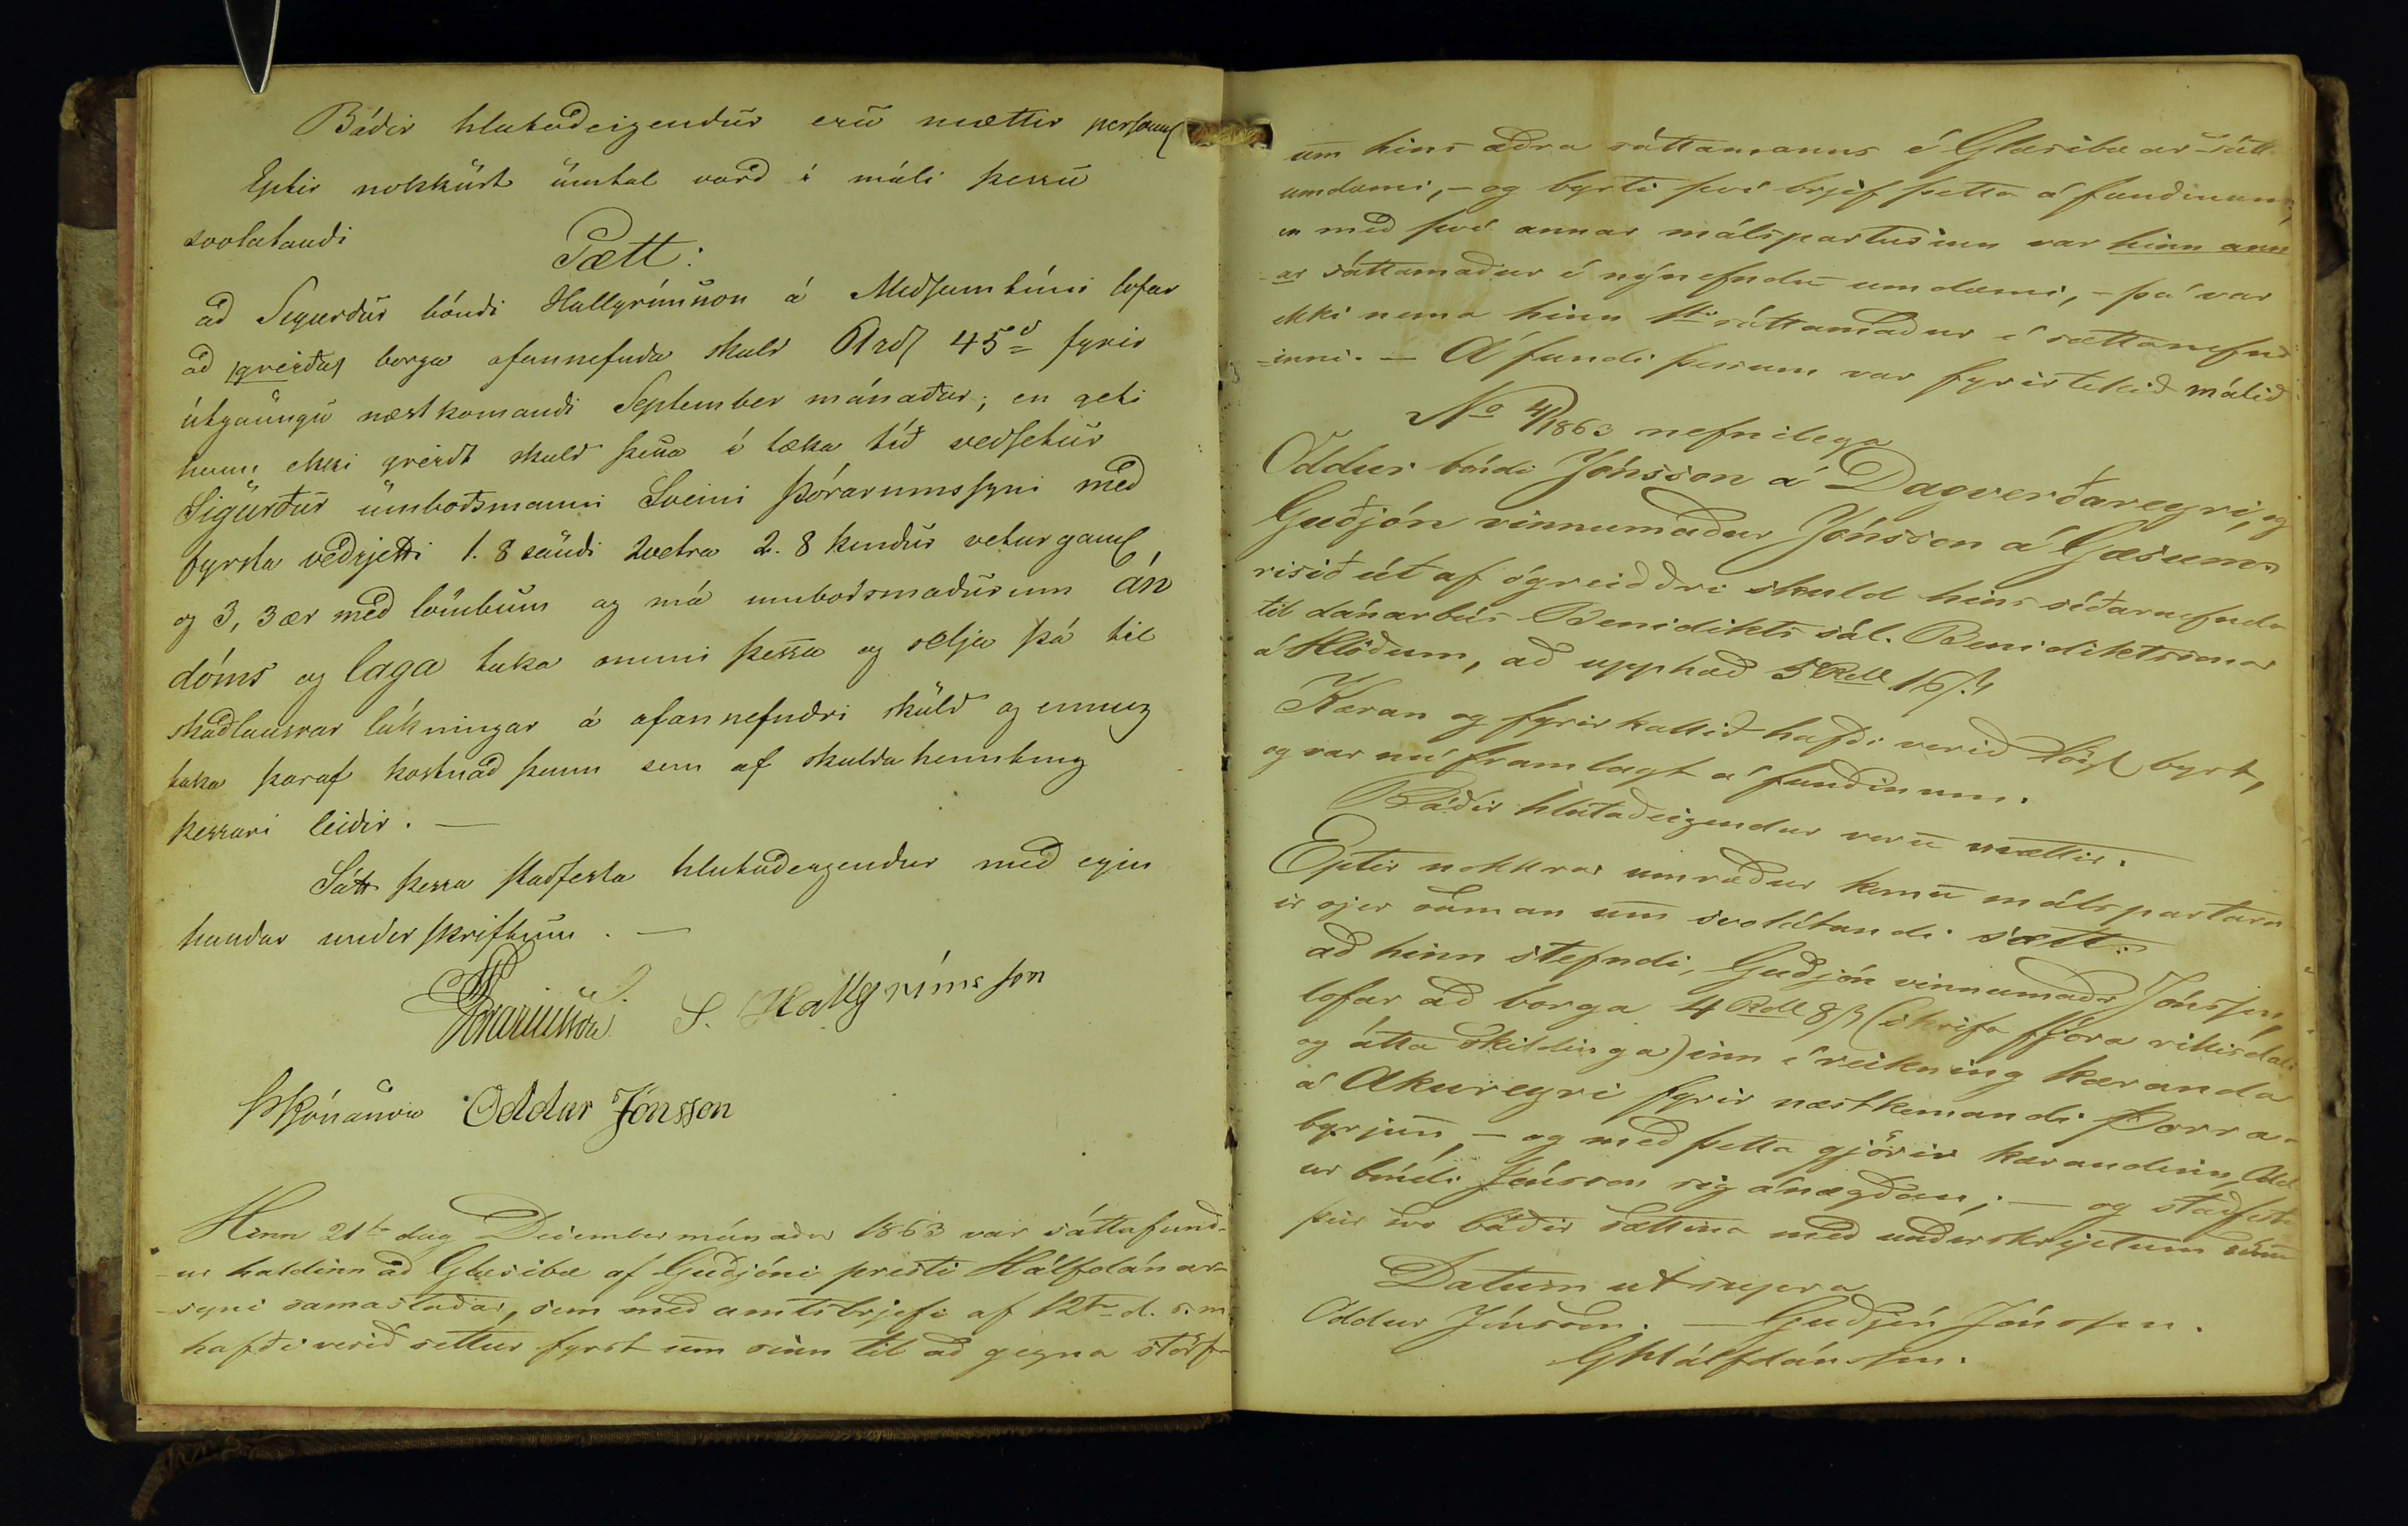 Báðir hlutaðeigendur eru mættir persónul
Eptir nokkurt umtal varð í máli þessu
svolátandi
Sætt:
að Sigurður bóndi Hallgrímsson á Meðsumtúni lofar
að greiða borga ofannefnda skuld 45 fyrir
útgaungu næstkomandi September mánaðar; en geti
hann ekki greidt skuld þessa í tæka tíð veðsetur
Sigurður umboðsmanni Sveini Þórarinnssyni með
fyrsta veðrjetti 1. 8 sauði 2vetra 2. 8 kindur veturgaml
og 3, 3 ær með lömbum og má umboðsmaðurinn án
dóms og laga taka muni þessa og selja þá til
skaðlausrar lúkningar á ofannefndri skuld og einnig
taka þaraf kostnað þann sem af skulda heimting
þessari leiðir. —
Sátt þessa staðfesta hlutaðeigendur með eigin
handar underskriftum. —
SÞórarinnsson S. Hallgrímsson
Oddur Jónsson
Hinn 21ta dag Desember mánaðar 1863 var sáttafund-
-ur haldinn að Glæsibæ af Guðjóni presti Hálfdánar-
-syni samastaðar, sem með amtsbrjefi af 12ta d. s. m.
hafði verið settur fyrst um sinn til að gegna störf-
um hins æðra sáttamanns í Glæsibæar sátt-
umdæmi, — og byrti því brjef þetta á fundinum,
en með því annar málsparturinn var hinn ann
-ar sáttamaður í nýnefndu umdæmi, — þá var
ekki nema hinn 1ti sáttamaður í sættanefnd
-inni. — Á fundi þessum var fyrirtekið málið
No 4/1863 nefnilega
Oddur bóndi Jónsson á Dagverðareyri, og
Guðjón vinnumaður Jónsson á Gæsum
risið út af ógreiddri skuld hins síðarnefnda
til dánarbús Benidikts sál. Benidiktssonar
á Hlöðum, að upphæð 5 Rdl 16 s
Kæran og fyrirkallið hafði verið lögl byrt,
og var nú framlagt á fundinum.
Báðir hlutaðeigendur voru mættir.
Eptir nokkrar umræður komu málspartarn
ir sjer saman um svolátandi sætt:
að hinn stefndi, Guðjón vinnumaðr Jónsson,
lofar að borga 4 Rdl 8 s (skrifa fjóra ríkisdali
og átta skildinga) inn í reikning kæranda
á Akureyri fyrir næstkomandi Þorra-
byrjun, — og með þetta gjörir kærandinn Odd
ur bóndi Jónsson sig ánægðan; — og staðfesta
þeir svo báðir sættina með underskriptum sínum
Datum ut supra
Oddur Jónsson. — Guðjón Jónsson.
GHálfdánsson.